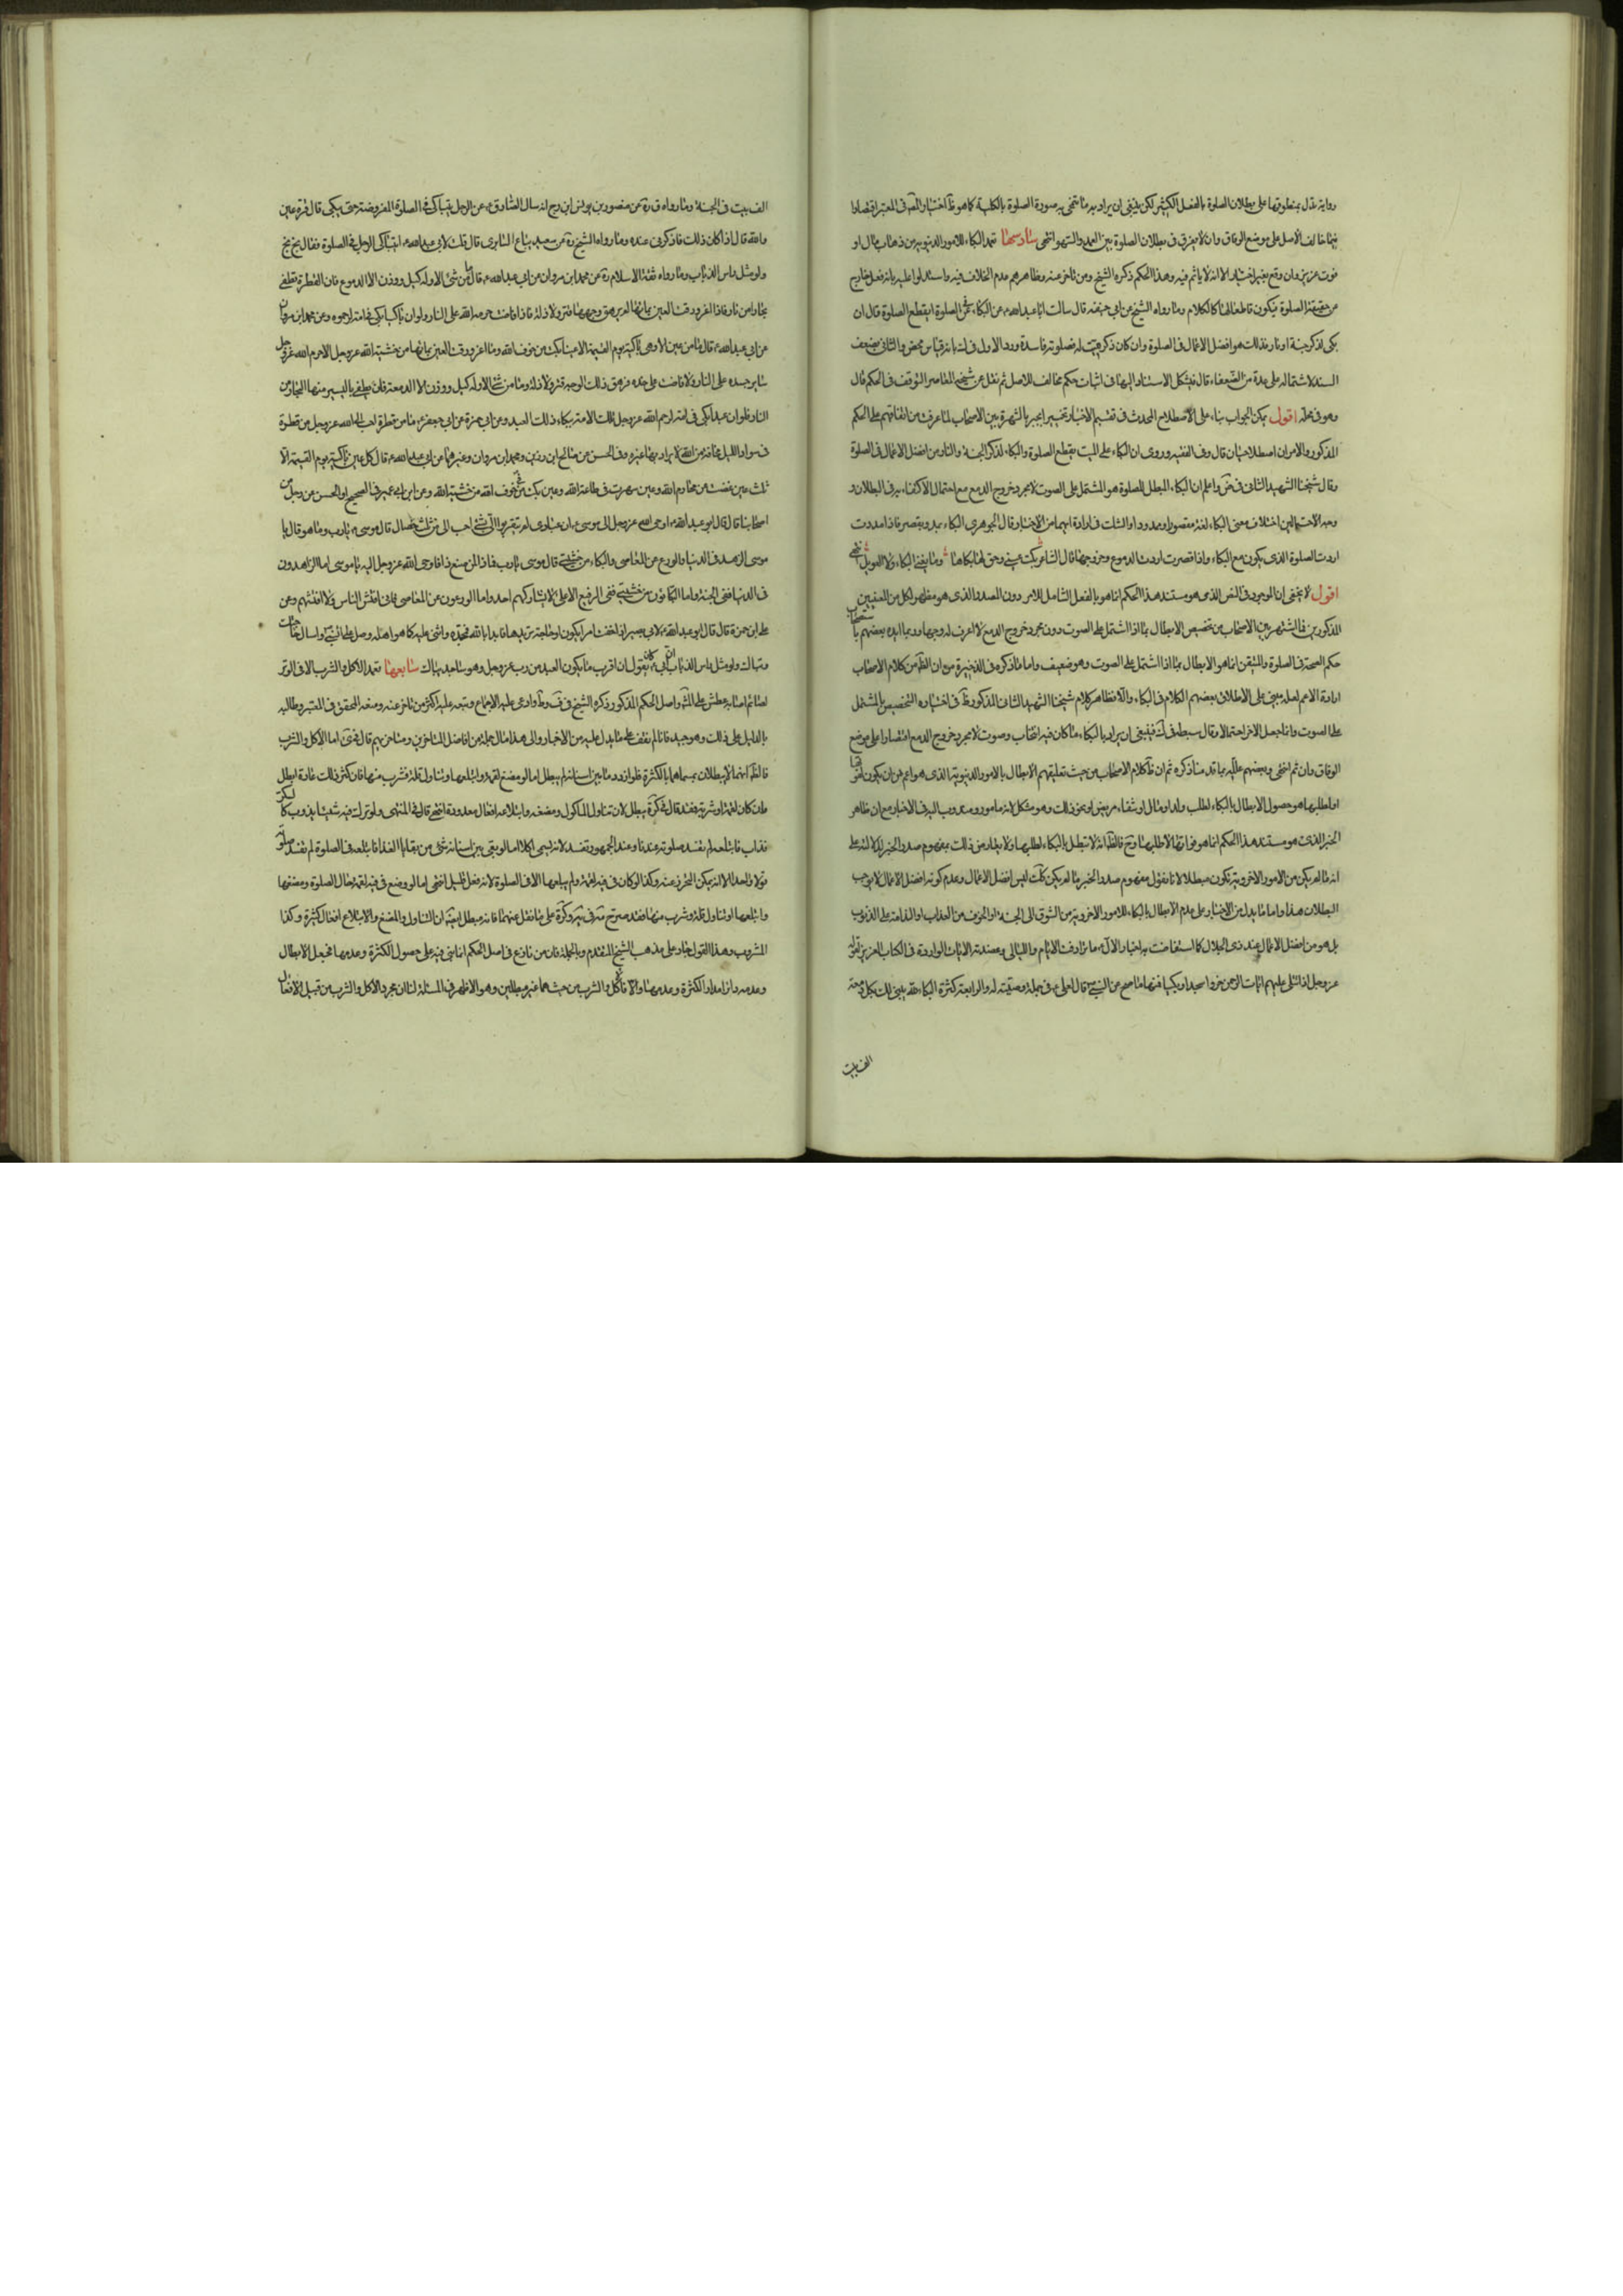 رواية تدل بمنطوقها على بطلان الصلوة بالفعل الكثير لكن ينبغى ان يراد به ما تنمحى به صورة الصلوة بالكلية كما هو ظاهر اختيار المصنف فى المعتبر اقتصارا
فيما خالف الاصل على موضع الوفاق وان لا يفرق فى بطلان الصلوة بين العمد والسهو انتهى سادسها تعمد البكاء للامور الدنيوية من ذهاب مال او
فوت عزيز وان وقع بغير اختيار الا انه لا ياثم فيه وهذا الحكم ذكره الشيخ ومن تاخر عنه وظاهرهم عدم الخلاف فيه واستدلوا عليه بانه فعل خارج
من حقيقة الصلوة فيكون قاطعا لها كالكلام وما رواه الشيخ عن ابى حنيفة قال سالت ابا عبد الله ع عن البكاء فى الصلوة ايقطع الصلوة قال ان
بكى لذكر جنة او نار فذلك هو افضل الاعمال فى الصلوة وان كان ذكر ميتا له فصلوته فاسدة ورد الاول فى ك بانه قياس محض والثانى بضعف
السند لاشتماله على عدة من الضعفاء قال فيشكل الاستناد اليها فى اثبات حكم مخالف للاصل ثم نقل عن شيخه المعاصر التوقف فى الحكم قال
وهو فى محله اقول يمكن الجواب بناء على الاصطلاح المحدث فى تقسيم الاخبار بجبر الخبر بالشهرة بين الاصحاب لما عرفت من اتفاقهم على الحكم
المذكور والامران اصطلاحيان قال وفى الفقيه وروى ان البكاء على الميت يقطع الصلوة والبكاء لذكر الجنة والنار من افضل الاعمال فى الصلوة
وقال شيخنا الشهيد الثانى فى ض واعلم ان البكاء المبطل للصلوة هو المشتمل على الصوت لا مجرد خروج الدمع مع احتمال الاكتفاء به فى البطلان و
وجه الاحتمالين اختلاف معنى البكاء لغة مقصورا وممدودا والشك فى ارادة ايهما من الاخبار قال الجوهرى البكاء يمد ويقصر فاذا مددت
اردت الصلوة الذى يكون مع البكاء واذا قصرت اردت الدموع وخروجها قال الشاعر بكت عينى وحق لها بكاها وما يغنى البكاء ولا العويل انتهى
اقول لا يخفى ان الموجود فى النص الذى هو مستند هذا الحكم انما هو بالفعل الشامل للامرين دون المصدر الذى هو مظهر لكل من المعنيين
المذكورين فما اشتهر بين الاصحاب من تخصيص الابطال بما اذا اشتمل على الصوت دون مجرد خروج الدمع لا اعرف له وجها وربما ايده بعضهم باستصحاب
حكم الصحة فى الصلوة والمتيقن انما هو الابطال بما اذا اشتمل على الصوت وهو ضعيف واما ما ذكره فى الذخيرة من ان الظ من كلام الاصحاب
ارادة الاعم لعله مبنى على الاطلاق بعضهم الكلام فى البكاء والا فظاهر كلام شيخنا الشهيد الثانى المذكور ظ فى اختياره التخصيص بالمشتمل
على الصوت وانما جعل الاخر احتمالا وقال سبطه فى ك فينبغى ان يراد بالبكاء ما كان فيه انتحاب وصوت لا مجرد خروج الدمع اقتصارا على موضع
الوفاق وان تم انتهى وبعضهم علله بما قدمنا ذكره ثم ان ظ كلام الاصحاب من حيث تعليقهم الابطال بالامور الدنيوية الذى هو اعم من ان يكون لفوتها
او لطلبها هو حصول الابطال بالبكاء لطلب ولد او مال او شفاء مريض او نحو ذلك وهو مشكل لانه مامور ومندوب اليه فى الاخبار مع ان ظاهر
الخبر الذى هو مستند هذا الحكم انما هو فواتها لا طلبها وح فالظ انه لا تبطل بالبكاء لطلبها ولا ينافى ذلك مفهوم صدر الخبر الدلالته على
انه ما لم يكن من الامور الاخروية تكون مبطلا لانا نقول مفهوم صدر الخبر ما لم يكن كك ليس افضل الاعمال وعدم كونه افضل الاعمال لا يوجب
البطلان هذا واما ما يدل من الاخبار على عدم الابطال بالبكاء للامور الاخروية من الشوق الى الجنة او الخوف من العذاب او الندامة على الذنوب
بل هو من افضل الاعمال عند ذى الجلال كما استفاضت به اخبار الآل ع ما ترادفت الايام والليالى ويعضده الايات الواردة فى الكتاب العزيز كقوله
عز وجل اذا تتلى عليهم ايات الرحمن خروا سجدا وبكيا فمنها ما صح عن النبى ص قال لعلى ع فى جملة وصيته له والرابعة كثرة البكاء لله يبنى لك بكل دمعة
الف بيت
الف بيت فى الجنة وما رواه فى يه عن منصور بن يونس بن بزرج انه سال الصادق ع عن الرجل يتباكى فى الصلوة المفروضة حتى يبكى قال قرة عين
والله قال اذا كان ذلك فاذكرنى عنده وما رواه الشيخ ره عن سعيد بياع السابرى قال قلت لابى عبد الله ع ايتباكى الرجل فى الصلوة فقال بخ بخ
ولو مثل راس الذباب وما رواه ثقة الاسلام ره عن محمد بن مروان عن ابى عبد الله ع قال ما من شئ الا وله كيل ووزن الا الدموع فان القطرة تطفى
بحارا من نار فاذا اغرورقت العين بمائها لم يرهق وجهها قتر ولا ذلة فاذا فاضت حرمه الله على النار ولو ان باكيا بكى فى امة لرحموا وعن محمد بن مروان
عن ابى عبد الله ع قال ما من عين الا وهى باكية يوم القيمة الا عينا بكت من خوف الله وما اغرورقت العين بمائها من خشية الله عز وجل الا حرم الله عز وجل
سائر جسده على النار ولا فاضت على خده فرهق ذلك الوجه قتر ولا ذلة وما من شئ الا وله كيل ووزن الا الدمعة فان الله يطفى باليسير منها البحار من
النار فلو ان عبدا بكى فى امة لرحم الله عز وجل تلك الامة ببكاء ذلك العبد وعن ابى حمزة عن ابى جعفر ع ما من قطرة احب الى الله عز وجل من قطرة
فى سواد الليل مخافة من الله لا يراد بها غيره وفى الحسن عن صالح بن رزين ومحمد بن مروان وغيرهما عن ابى عبد الله ع قال كل عين باكية يوم القيمة الا
ثلث عين غضت عن محارم الله وعين سهرت فى طاعة الله وعين بكت فى جوف الليل من خشية الله وعن ابن ابى عمير فى الصحيح او الحسن عن رجل من
اصحابنا قال قال ابو عبد الله ع اوحى الله عز وجل الى موسى ع ان عبادى لم يتقربوا الى بشئ احب الى من ثلث خصال قال موسى ع يا رب وما هو قال يا
موسى الزهد فى الدنيا والورع عن المعاصى والبكاء من خشيتى قال موسى يا رب فما لمن صنع ذا فاوحى الله عز وجل اليه يا موسى اما الزاهدون
فى الدنيا ففى الجنة واما البكاؤن من خشيتى ففى الرفيع الاعلى لا يشاركهم احد واما الورعون عن المعاصى فانى افتش الناس ولا افتشهم وعن
على بن حمزة قال قال ابو عبد الله ع لابى بصير اذا خفت امرا يكون او حاجة تريدها فابدا بالله فمجده واثن عليه كما هو اهله وصل على النبى واسال حاجتك
وتباك ولو مثل راس الذباب ان ابى كان يقول ان اقرب ما يكون العبد من رب عز وجل وهو ساجد باك سابعها تعمد الاكل والشرب الا فى الوتر
لصائم اصابه عطش على المشهور واصل الحكم المذكور ذكره الشيخ فى ف و ط وادعى عليه الاجماع وتبعه عليه اكثر من تاخر عنه ومنعه المحقق فى المعتبر وطالبه
بالدليل على ذلك وهو جيد فانا لم نقف على ما يدل عليه من الاخبار والى هذا مال جملة من افاضل المتاخرين ومتاخريهم قال فى ى اما الاكل والشرب
فالظ انهما لا يبطلان بمسماهما بالكثرة فلو ازدرد ما بين اسنانه لم يبطل اما لو مضغ لقمة وابتلعها وتناول قلة وشرب منها فان كثر ذلك عادة ابطل
وان كان لقمة او شربة فقد قال فى كرة يبطل لان تناول الماكول ومضغه وابتلاعه افعال معدودة انتهى قال فى المنتهى ولو ترك فيه شيئا يذوب كالسكر
فذاب فابتلعه لم تفسد صلوته عندنا وعند الجمهور تفسد لانه يسمى اكلا اما لو بقى بين اسنانه شئ من بقايا الغذا فابتلعه فى الصلوة لم تفسد صلوته
قولا واحدا لانه لا يمكن التحرز عنه وكذا لو كان فى فيه لقمة ولم يبلعها الا فى الصلوة لانه فعل قليل انتهى اما لو وضع فى فيه لقمة حال الصلوة ومضغها
وابتلعها او تناول قلة وشرب منها فقد صرح فى يه وكرة على ما نقل عنهما فانه مبطل ايضا لان التناول والمضغ والابتلاع افعال كثيرة وكذا
المشروب وهذا القول جار على مذهب الشيخ المتقدم وبالجملة فان من نازع فى اصل الحكم انما بنى فيه على حصول الكثرة وعدمها فجعل الابطال
وعدمه دائرا مدار الكثرة وعدمها والا فالاكل والشرب من حيث هما غير مبطلين وهو الاظهر فى المسئلة لنا ان مجرد الاكل والشرب من قبيل الافعال